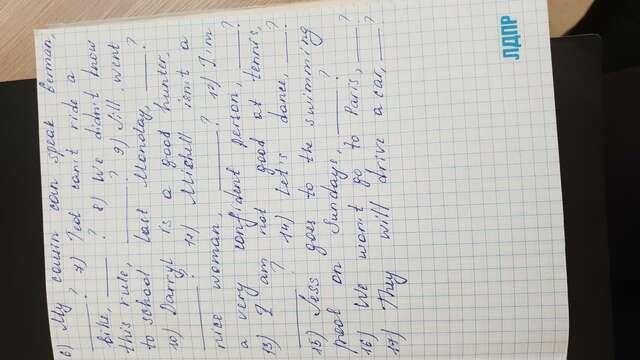 6) My cousin can speak German,
____? 7) Ted can't ride a
bike, ____? 8) We didn't know
this rule, ____? 9) Jill went
to school last Monday, ____?
10) Darryl is a good hunter,
____? 11) Michell isn't a
nice woman, ____? 12) I'm
a very confident person, ____?
13) I am not good at tennis,
____? 14) Let's dance, ____?
15) Jess goes to the swimming
pool on Sundays, ____?
16) We won't go to Paris, ____?
17) They will drive a car, ____?
ЛДПР